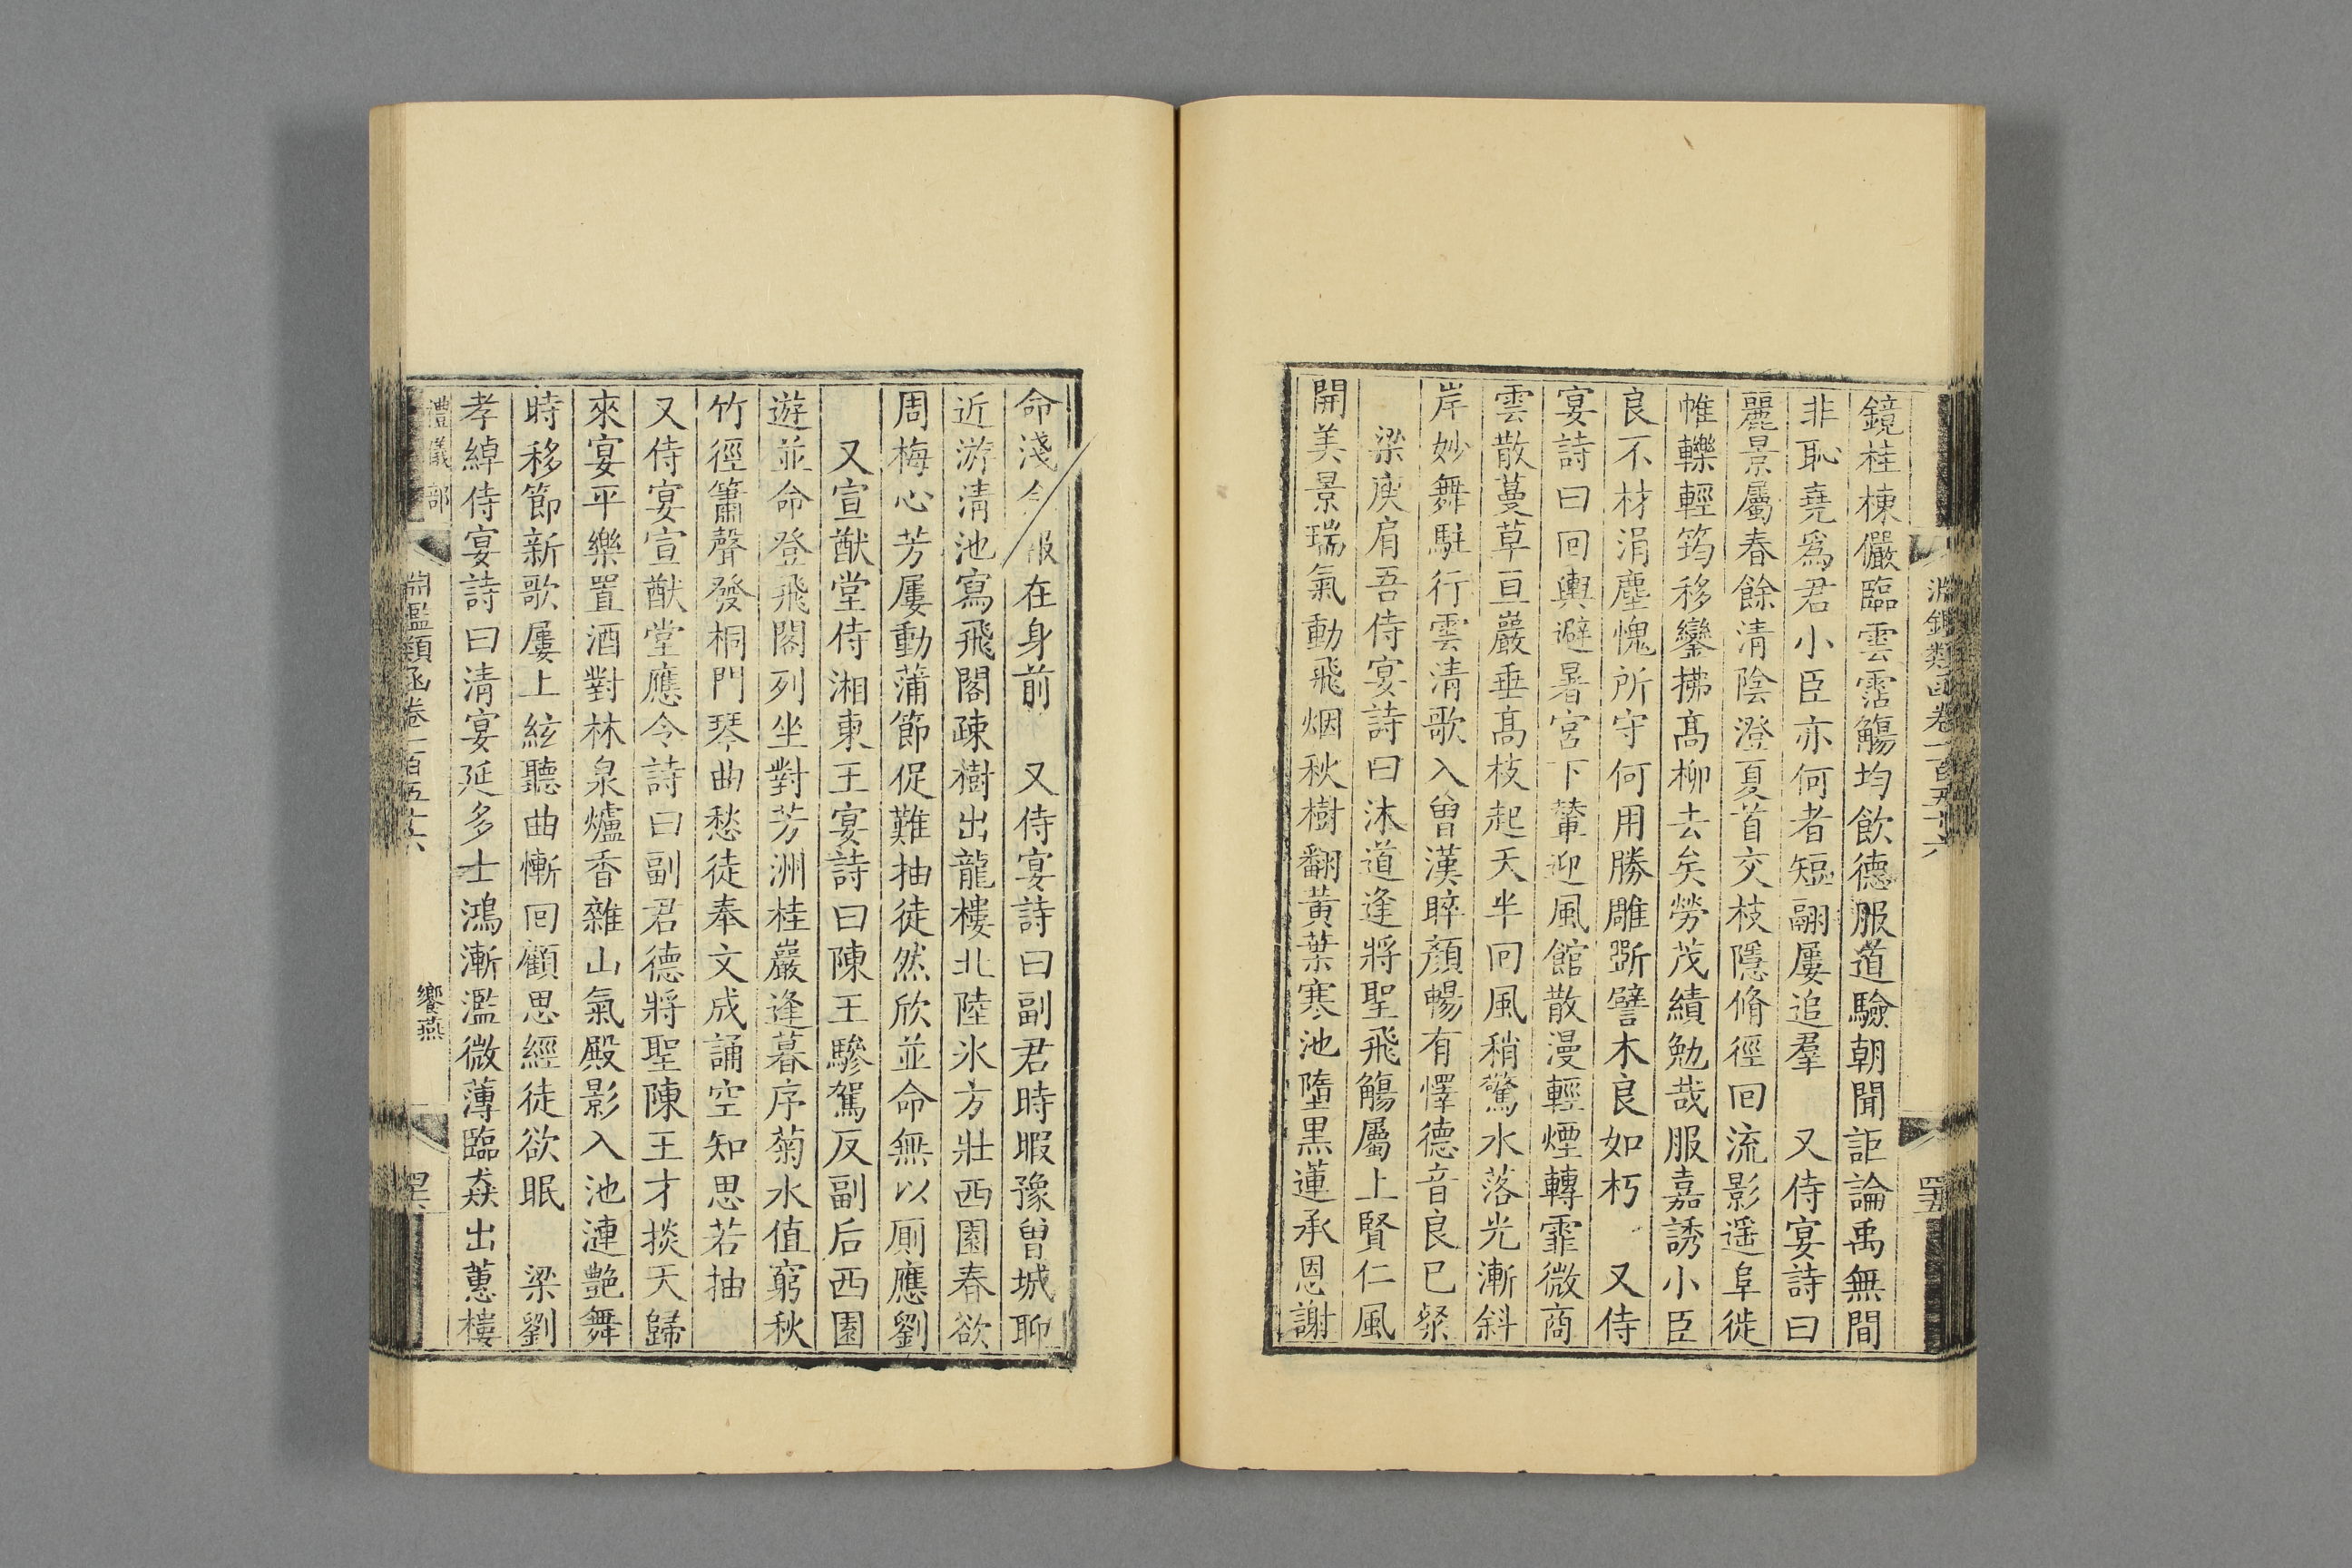 鏡桂棟儼臨雲霑觴均飲德服道驗朝聞詎論禹無間
非恥堯爲君小臣亦何者短翮屢追羣　又侍宴詩曰
麗景屬春餘清陰澄夏首交枝隱脩徑回流影遥阜徙
帷轢輕筠移鑾拂髙柳去矣勞茂績勉哉服嘉誘小臣
良不材涓塵愧所守何用勝雕斵譬木良如朽　又侍
宴詩曰回輿避暑宮下輦迎風館散漫輕煙轉霏微商
雲散蔓草亘巖垂髙枝起天半回風稍驚水落光漸斜
岸妙舞駐行雲清歌入曽漢睟顔暢有懌德音良已粲
梁庾肩吾侍宴詩曰沐道逢將聖飛觴屬上賢仁風
開美景瑞氣動飛烟秋樹翻黃葉寒池墮黒蓮承恩謝
淵鑑類函卷一百五十六
四五
命淺 在身前　又侍宴詩曰副君時暇豫曽城聊
近游清池寫飛閣疎樹出龍樓北陸氷方壯西園春欲
周梅心芳屢動蒲節促難抽徒然欣並命無以厠應劉
又宣猷堂侍湘東王宴詩曰陳王驂駕反副后西園
遊並命登飛閣列坐對芳洲桂巖逢暮序菊水值窮秋
竹徑簫聲發桐門琴曲愁徒奉文成誦空知思若抽
又侍宴宣猷堂應令詩曰副君德將聖陳王才掞天歸
來宴平樂置酒對林泉爐香雜山氣殿影入池漣艶舞
時移節新歌屢上絃聽曲慚回顧思經徒欲眠　梁劉
孝綽侍宴詩曰清宴延多士鴻漸濫微薄臨猋出蕙樓
禮儀部
淵鑑類函卷一百五十六
饗燕